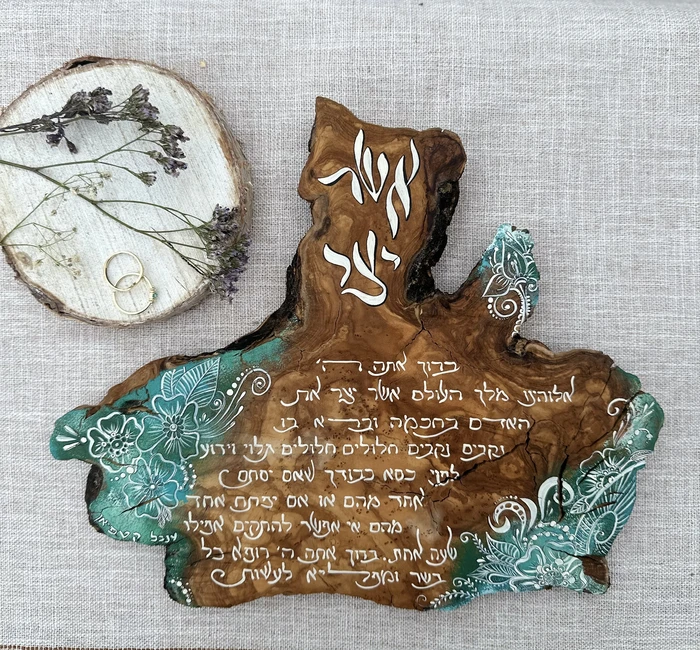 אשר
יצר
ברוך אתה ה'
אלוהינו מלך העולם אשר יצר את
האדם בחכמה וברא בו
נקבים נקבים חלולים חלולים גלוי וידוע
לפני כסא כבודך שאם יסתם
אחד מהם או אם יפתח אחד
מהם אי אפשר להתקיים אפילו
שעה אחת. ברוך אתה ה' רופא כל
בשר ומפליא לעשות
ענבל